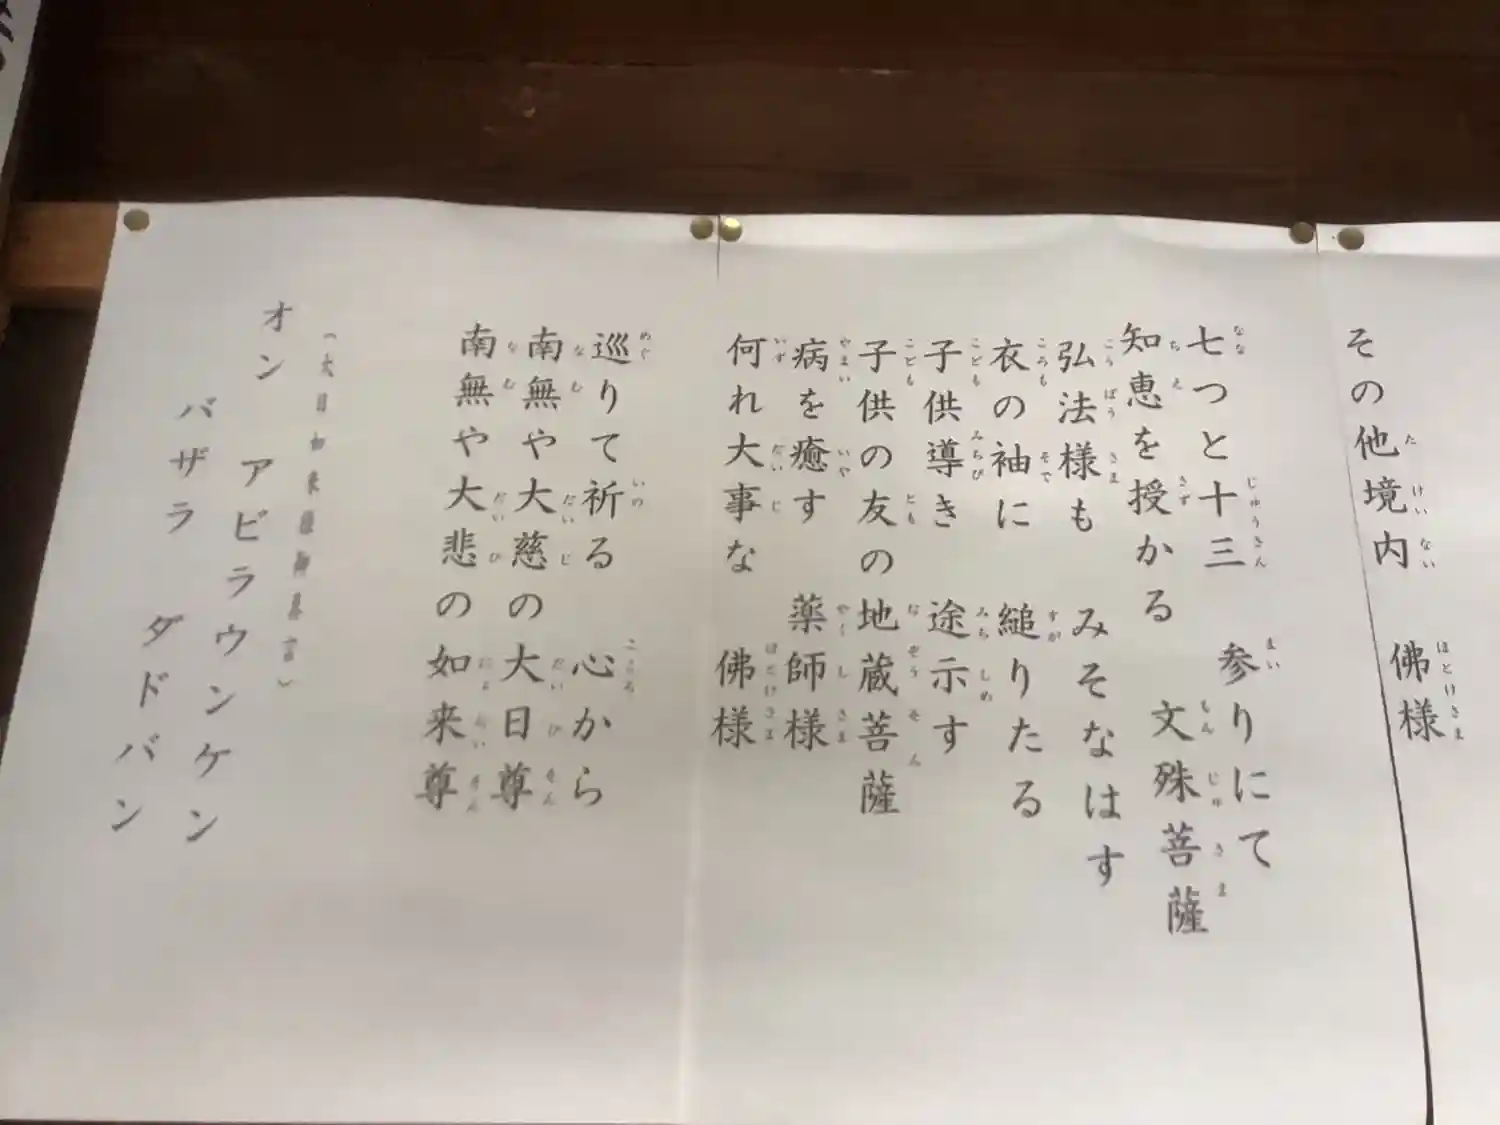 その他境内 佛様
七つと十三 参りにて
知恵を授かる 文殊菩薩
弘法様も みそなはす
衣の袖に 縋りたる
子供導き 途示す
子供の友の 地蔵菩薩
病を癒す 薬師様
何れ大事な 佛様
巡りて祈る 心から
南無や大慈の 大日尊
南無や大悲の 如来尊
(大日如来様御真言)
オン アビラウンケン
バザラ ダドバン